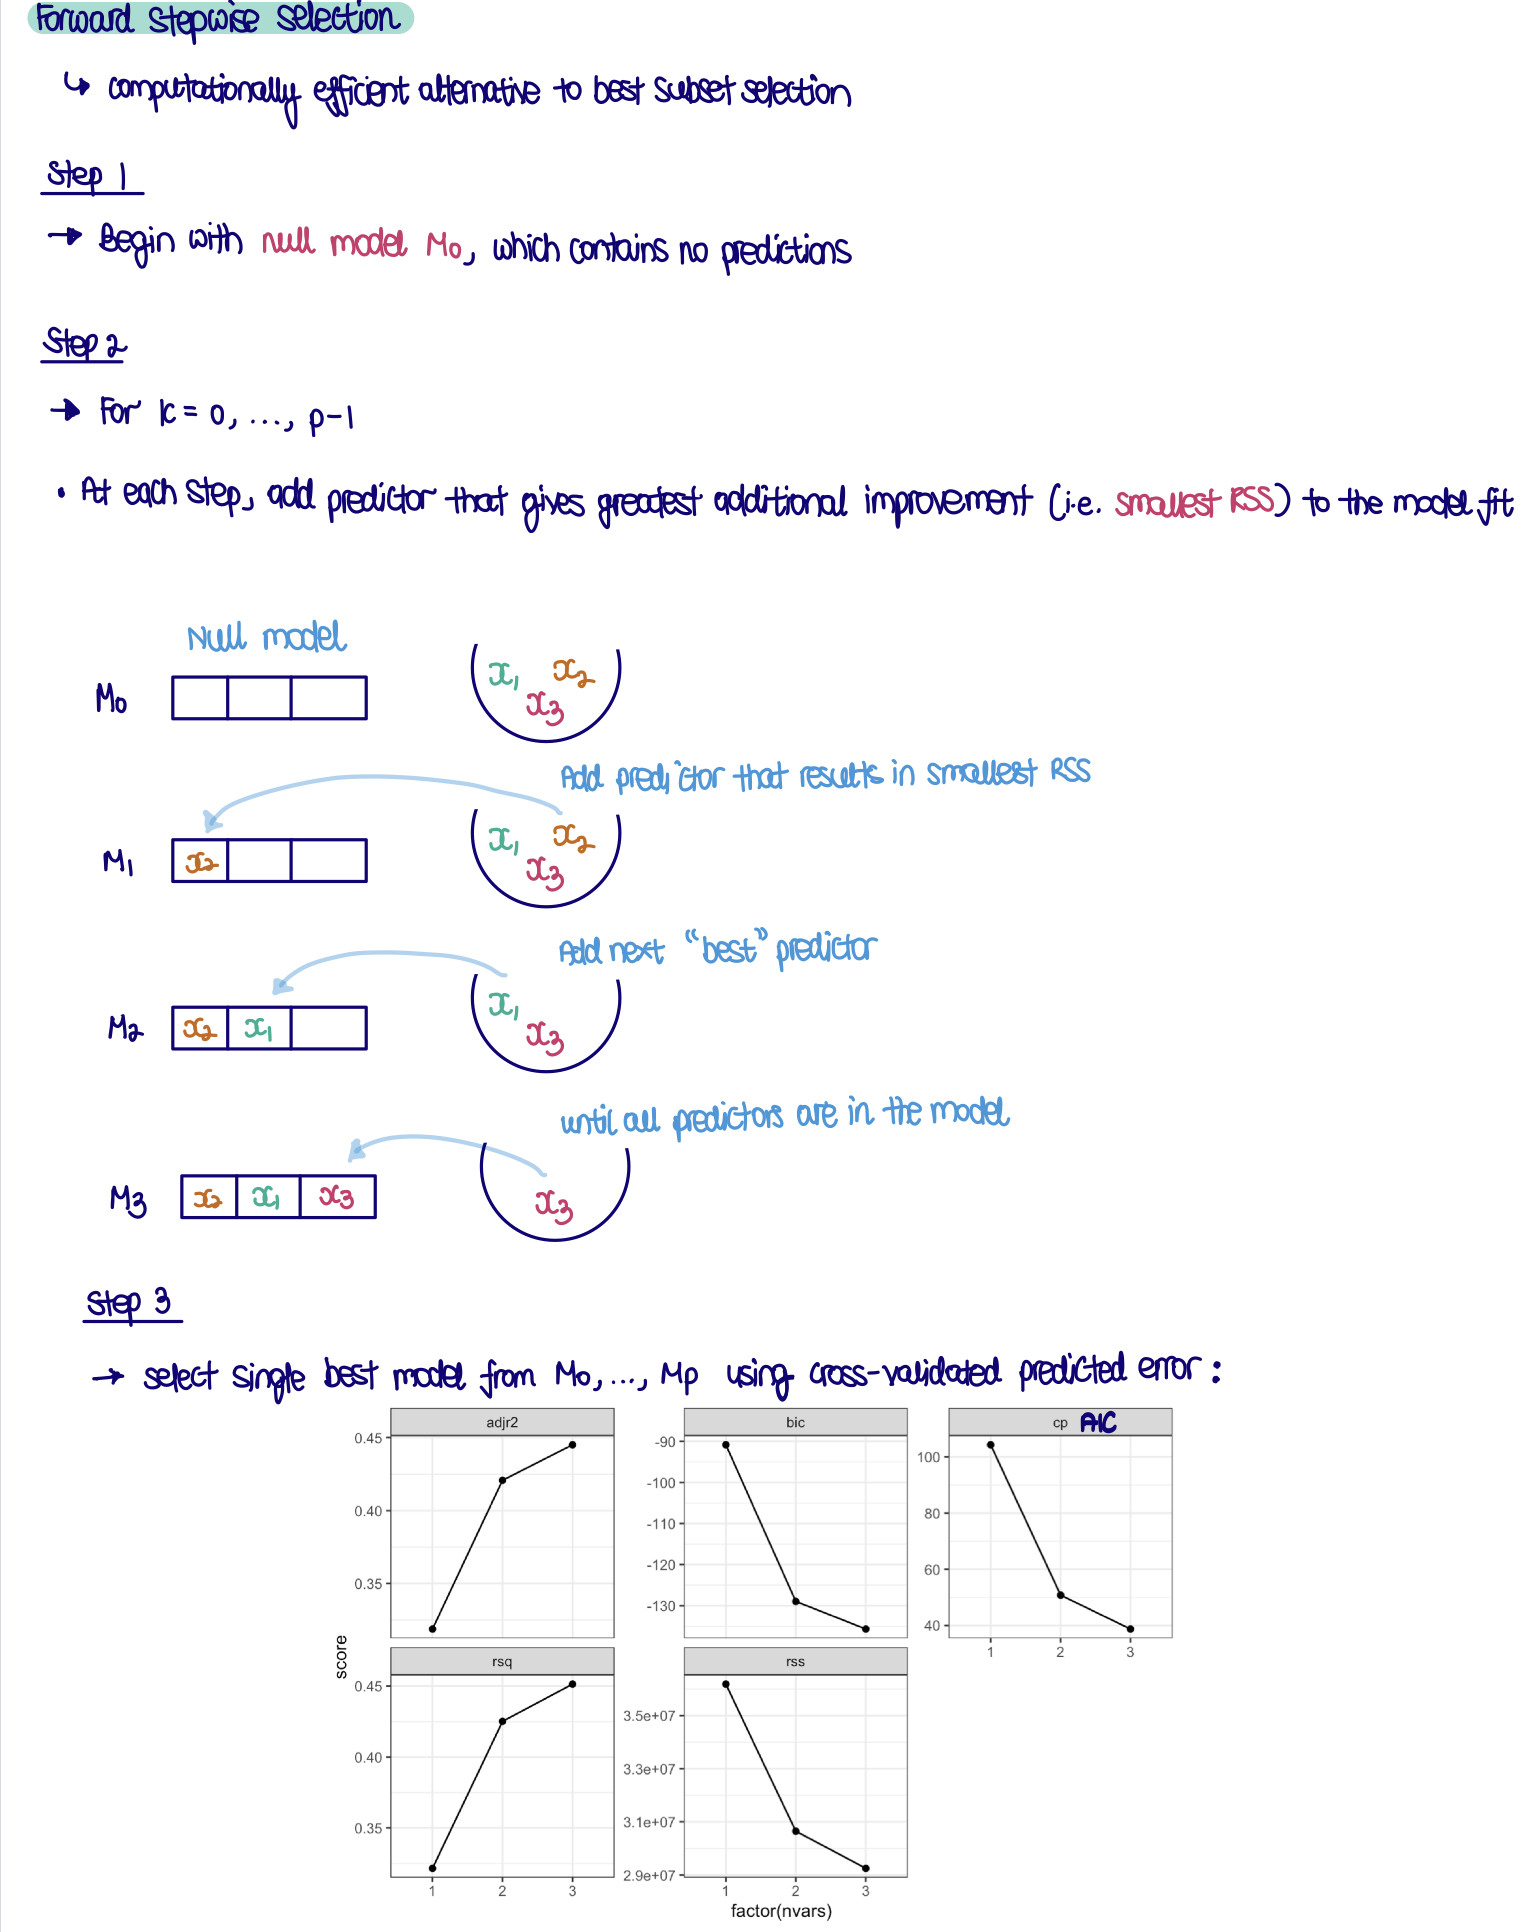 Forward stepwise selection
↳ computationally efficient alternative to best subset selection
Step 1
→ Begin with null model M₀, which contains no predictions
Step 2
→ For k = 0, ..., p-1
• At each step, add predictor that gives greatest additional improvement (i.e. smallest RSS) to the model fit
Null model
M₀
x₁ x₂
x₃
Add predictor that results in smallest RSS
M₁ x₂
x₁ x₂
x₃
Add next "best" predictor
M₂ x₂ x₁
x₁
x₃
until all predictors are in the model
M₃ x₂ x₁ x₃
x₃
Step 3
→ select single best model from M₀, ..., Mp using cross-validated predicted error:
adjr2
0.45
0.40
0.35
bic
-90
-100
-110
-120
-130
cp AIC
100
80
60
40
1 2 3
score
rsq
0.45
0.40
0.35
1 2 3
rss
3.5e+07
3.3e+07
3.1e+07
2.9e+07
1 2 3
factor(nvars)